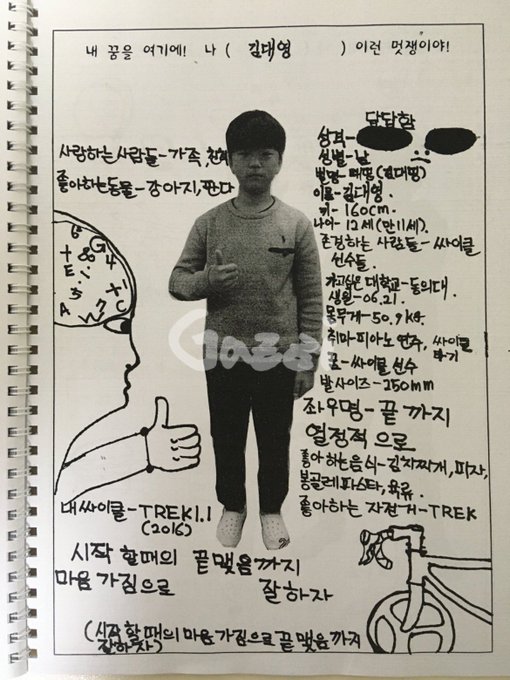 내 꿈을 여기에! 나 ( 김대영 ) 이런 멋쟁이야!
사랑하는 사람들-가족, 친척
좋아하는동물-강아지,판다
답답함
성격-
성별-남
별명-때띵(김대띵)
이름-김대영.
키-160cm.
나이-12세(만11세).
존경하는 사람들-싸이클
선수들.
가고싶은 대학교-동의대.
생일-06.21.
몸무게-50.9kg.
취미-피아노 연주, 싸이클
타기
꿈-싸이클 선수
발사이즈-250mm
좌우명-끝까지
열정적으로
좋아하는음식-김치찌개,피자,
봉골레파스타,육류.
좋아하는 자전거-TREK
내싸이클-TREK1.1
(2016)
시작 할때의 끝맺음까지
마음가짐으로 잘하자
(시작할때의마음가짐으로끝맺음까지
잘하자)